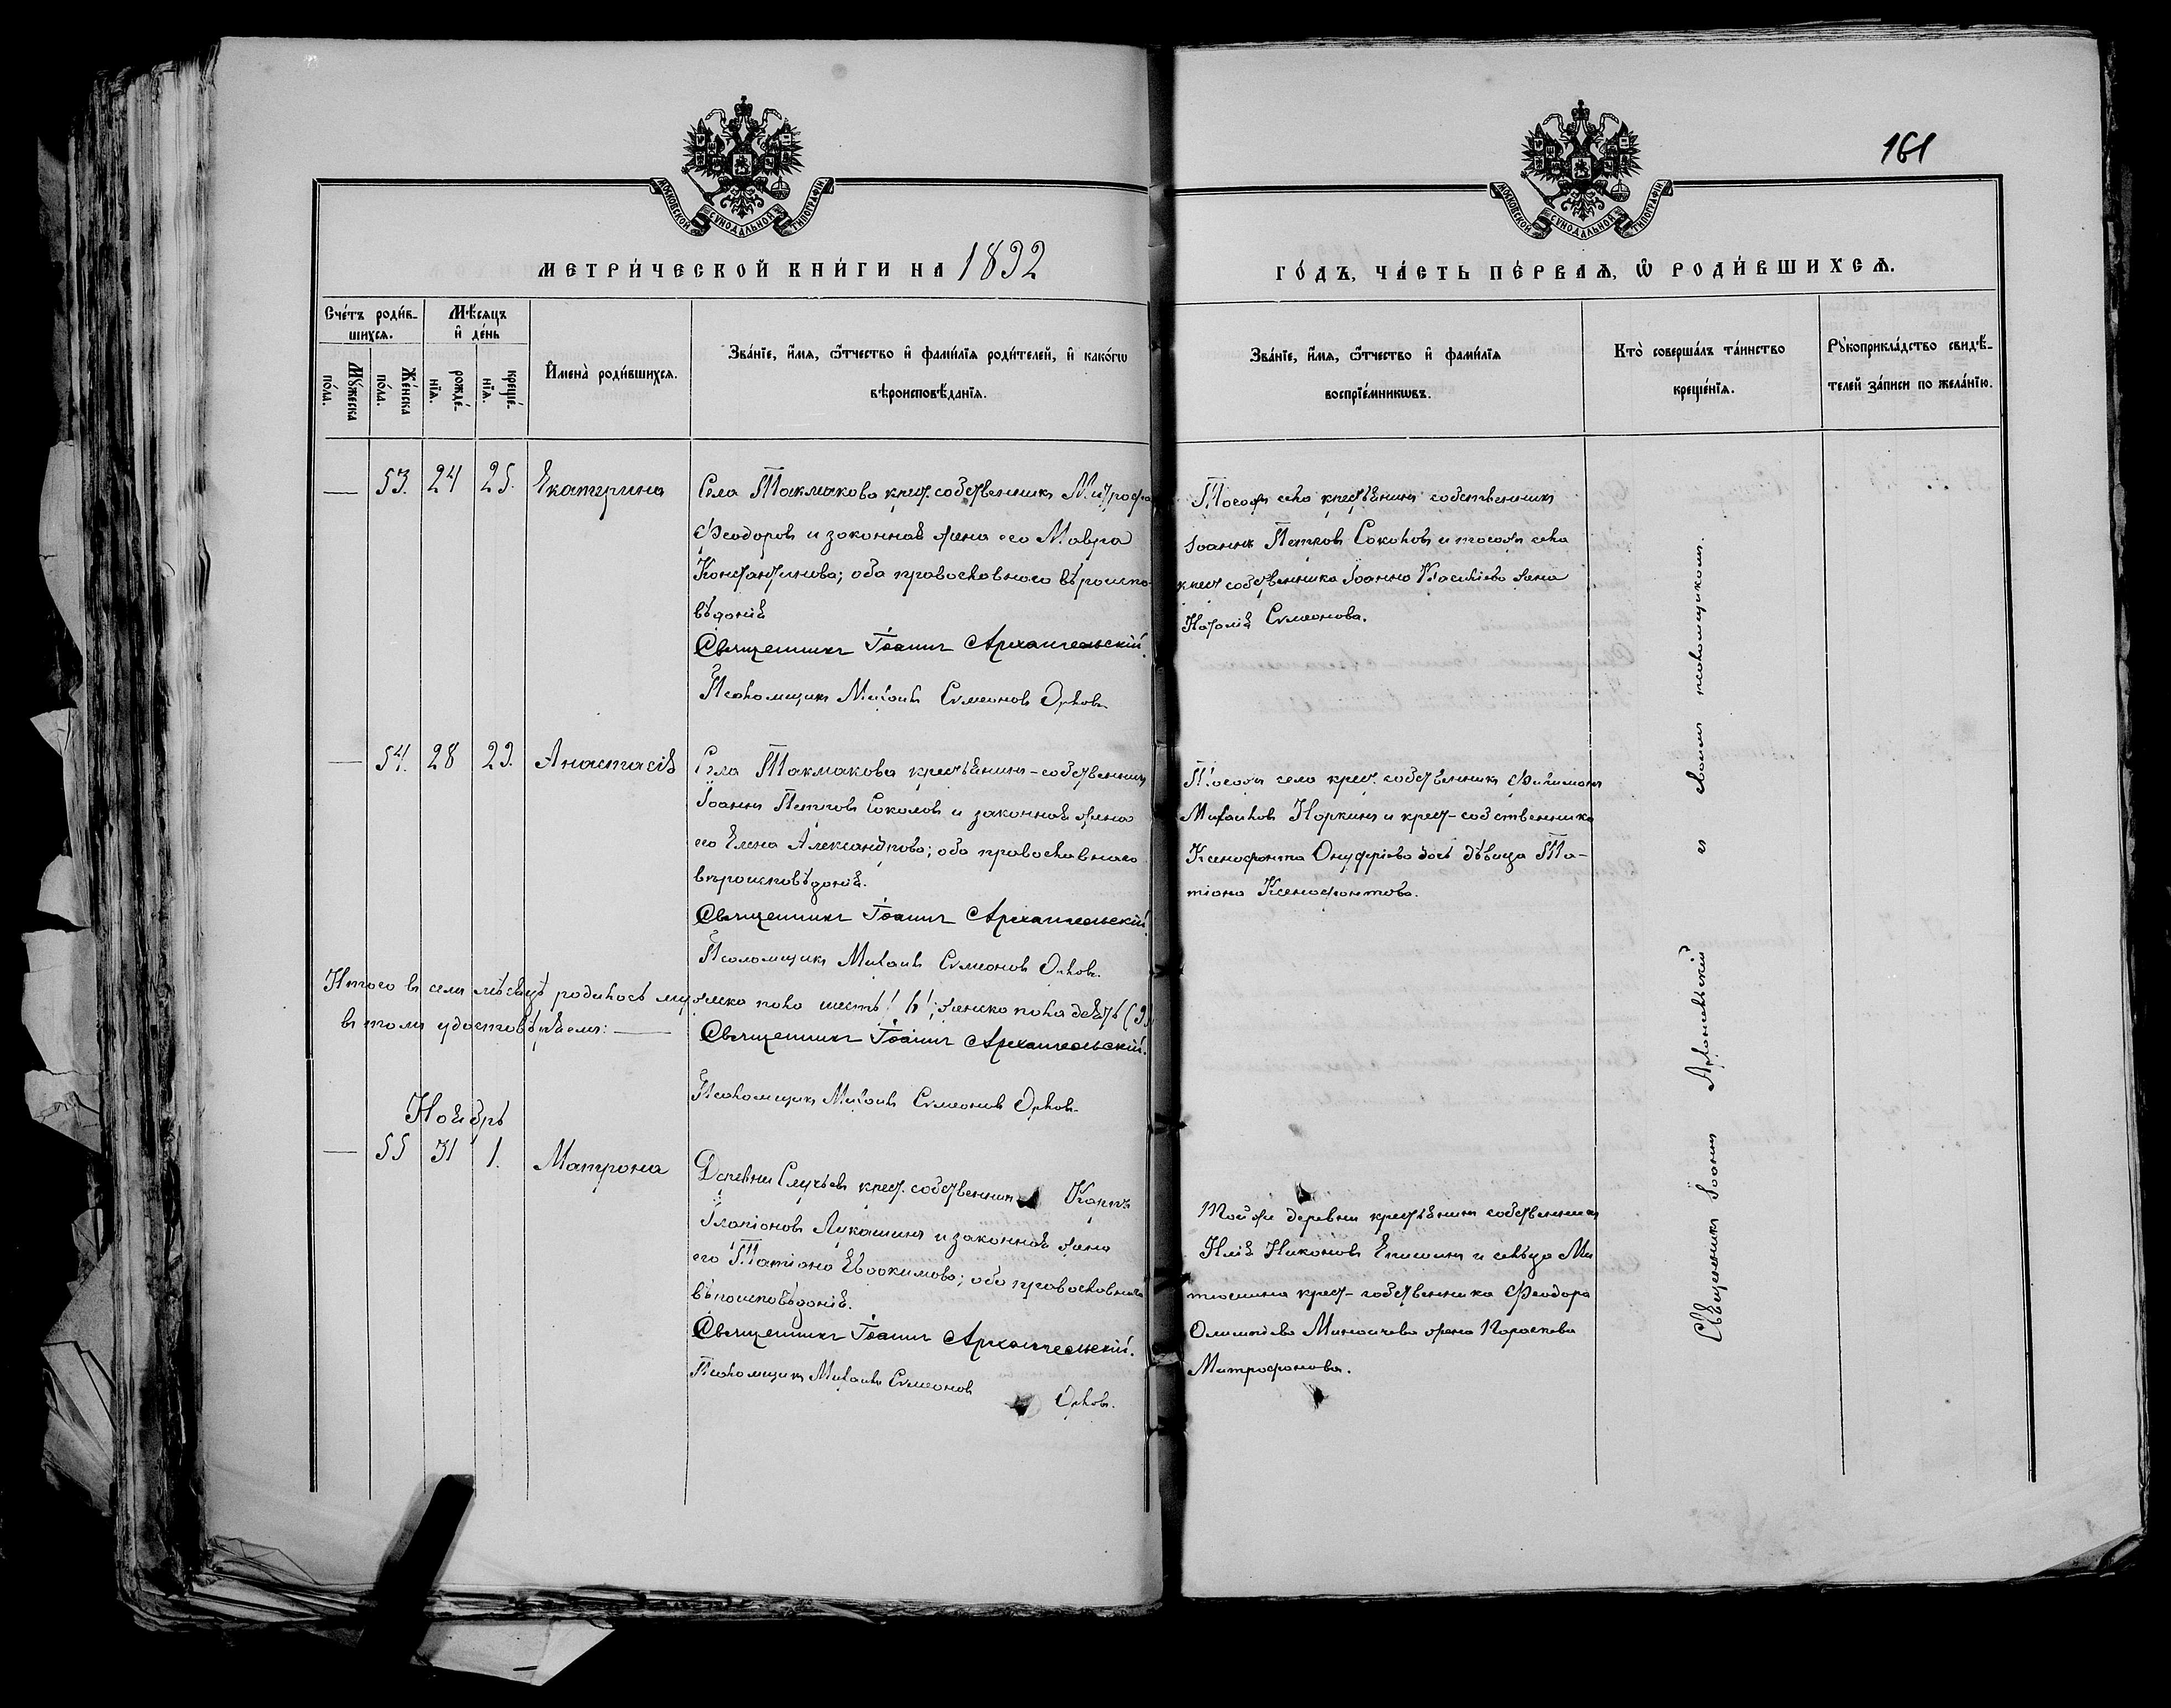 161
МОСКОВСКОЙ СѴНОДАЛЬНОЙ ТИПОГРАФІИ
МОСКОВСКОЙ СѴНОДАЛЬНОЙ ТИПОГРАФІИ
МЕТРИ́ЧЕСКОЙ КНИ́ГИ НА 1892
ГО́ДЪ, ЧА́СТЬ ПЕ́РВАѦ, Ѽ РОДИ́ВШИХСѦ.
Сче́тъ роди́в-
шихсѧ.
Мꙋ́жеска по́ла.
Же́нска по́ла.
Мѣ́сѧцъ
и҆ де́нь
рожде́-
нїѧ.
креще́-
нїѧ.
И҆мена̀ роди́вшихсѧ.
Зва́нїе, и҆́мѧ, ѻ҆́тчество и҆ фами́лїѧ роди́телей, и҆ како́гѡ
вѣроисповѣ́данїѧ.
Зва́нїе, и҆́мѧ, ѻ҆́тчество и҆ фами́лїѧ
воспрїе́мникѡвъ.
Кто̀ соверша́лъ та́инство
креще́нїѧ.
Рꙋкоприкла́дство свидѣ́-
телей за́писи по жела́нїю.
— 53. 24 25. Екатерина
Села Такмакова крест. собственникъ Митрофа
Феодоровъ и законная жена его Мавра
Константинова; оба православнаго вѣроиспо-
вѣданія
Священникъ Іоаннъ Архангельскій.
Псаломщикъ Михаилъ Сѵмеоновъ Орловъ.
Тогоже села крестьянинъ собственникъ
Іоаннъ Петровъ Соколовъ и тогоже села
крест собственника Іоанна Васильева жена
Наталія Сѵмеонова.
— 54. 28 29. Анастасія
Села Такмакова крестьянинъ-собственникъ
Іоаннъ Петровъ Соколовъ и законная жена
его Елена Александрова; оба православнаго
вѣроисповѣданія.
Священникъ Іоаннъ Архангельскій.
Псаломщикъ Михаилъ Сѵмеоновъ Орловъ.
Тогоже села крест. собственникъ Филимонъ
Михаиловъ Норкинъ и крест-собственника
Ксенофонта Онуфріева дочь дѣвица Та-
тіана Ксенофонтова.
Итого въ семъ мѣсяцѣ родилось мужеска пола шесть (6); женска пола девять (9)
въ томъ удостовѣряемъ: —
Священникъ Іоаннъ Архангельскій.
Псаломщикъ Михаилъ Сѵмеоновъ Орловъ.
Ноябрь
— 55 31 1. Матрона
Деревни крест. собственникъ Карпъ
Иларіоновъ Лукашинъ и законная жена
его Татіана Евдокимова; оба православнаго
вѣроисповѣданія.
Священникъ Іоаннъ Архангельскій.
Псаломщикъ Михаилъ Сѵмеоновъ
Орловъ.
Той же деревни крестьянинъ собственникъ
Илія Никоновъ и сельца Ми
тюшина крест-собственника Феодора
жена Параскева
Митрофанова.
Священникъ Іоаннъ Архангельскій съ своимъ псаломщикомъ.